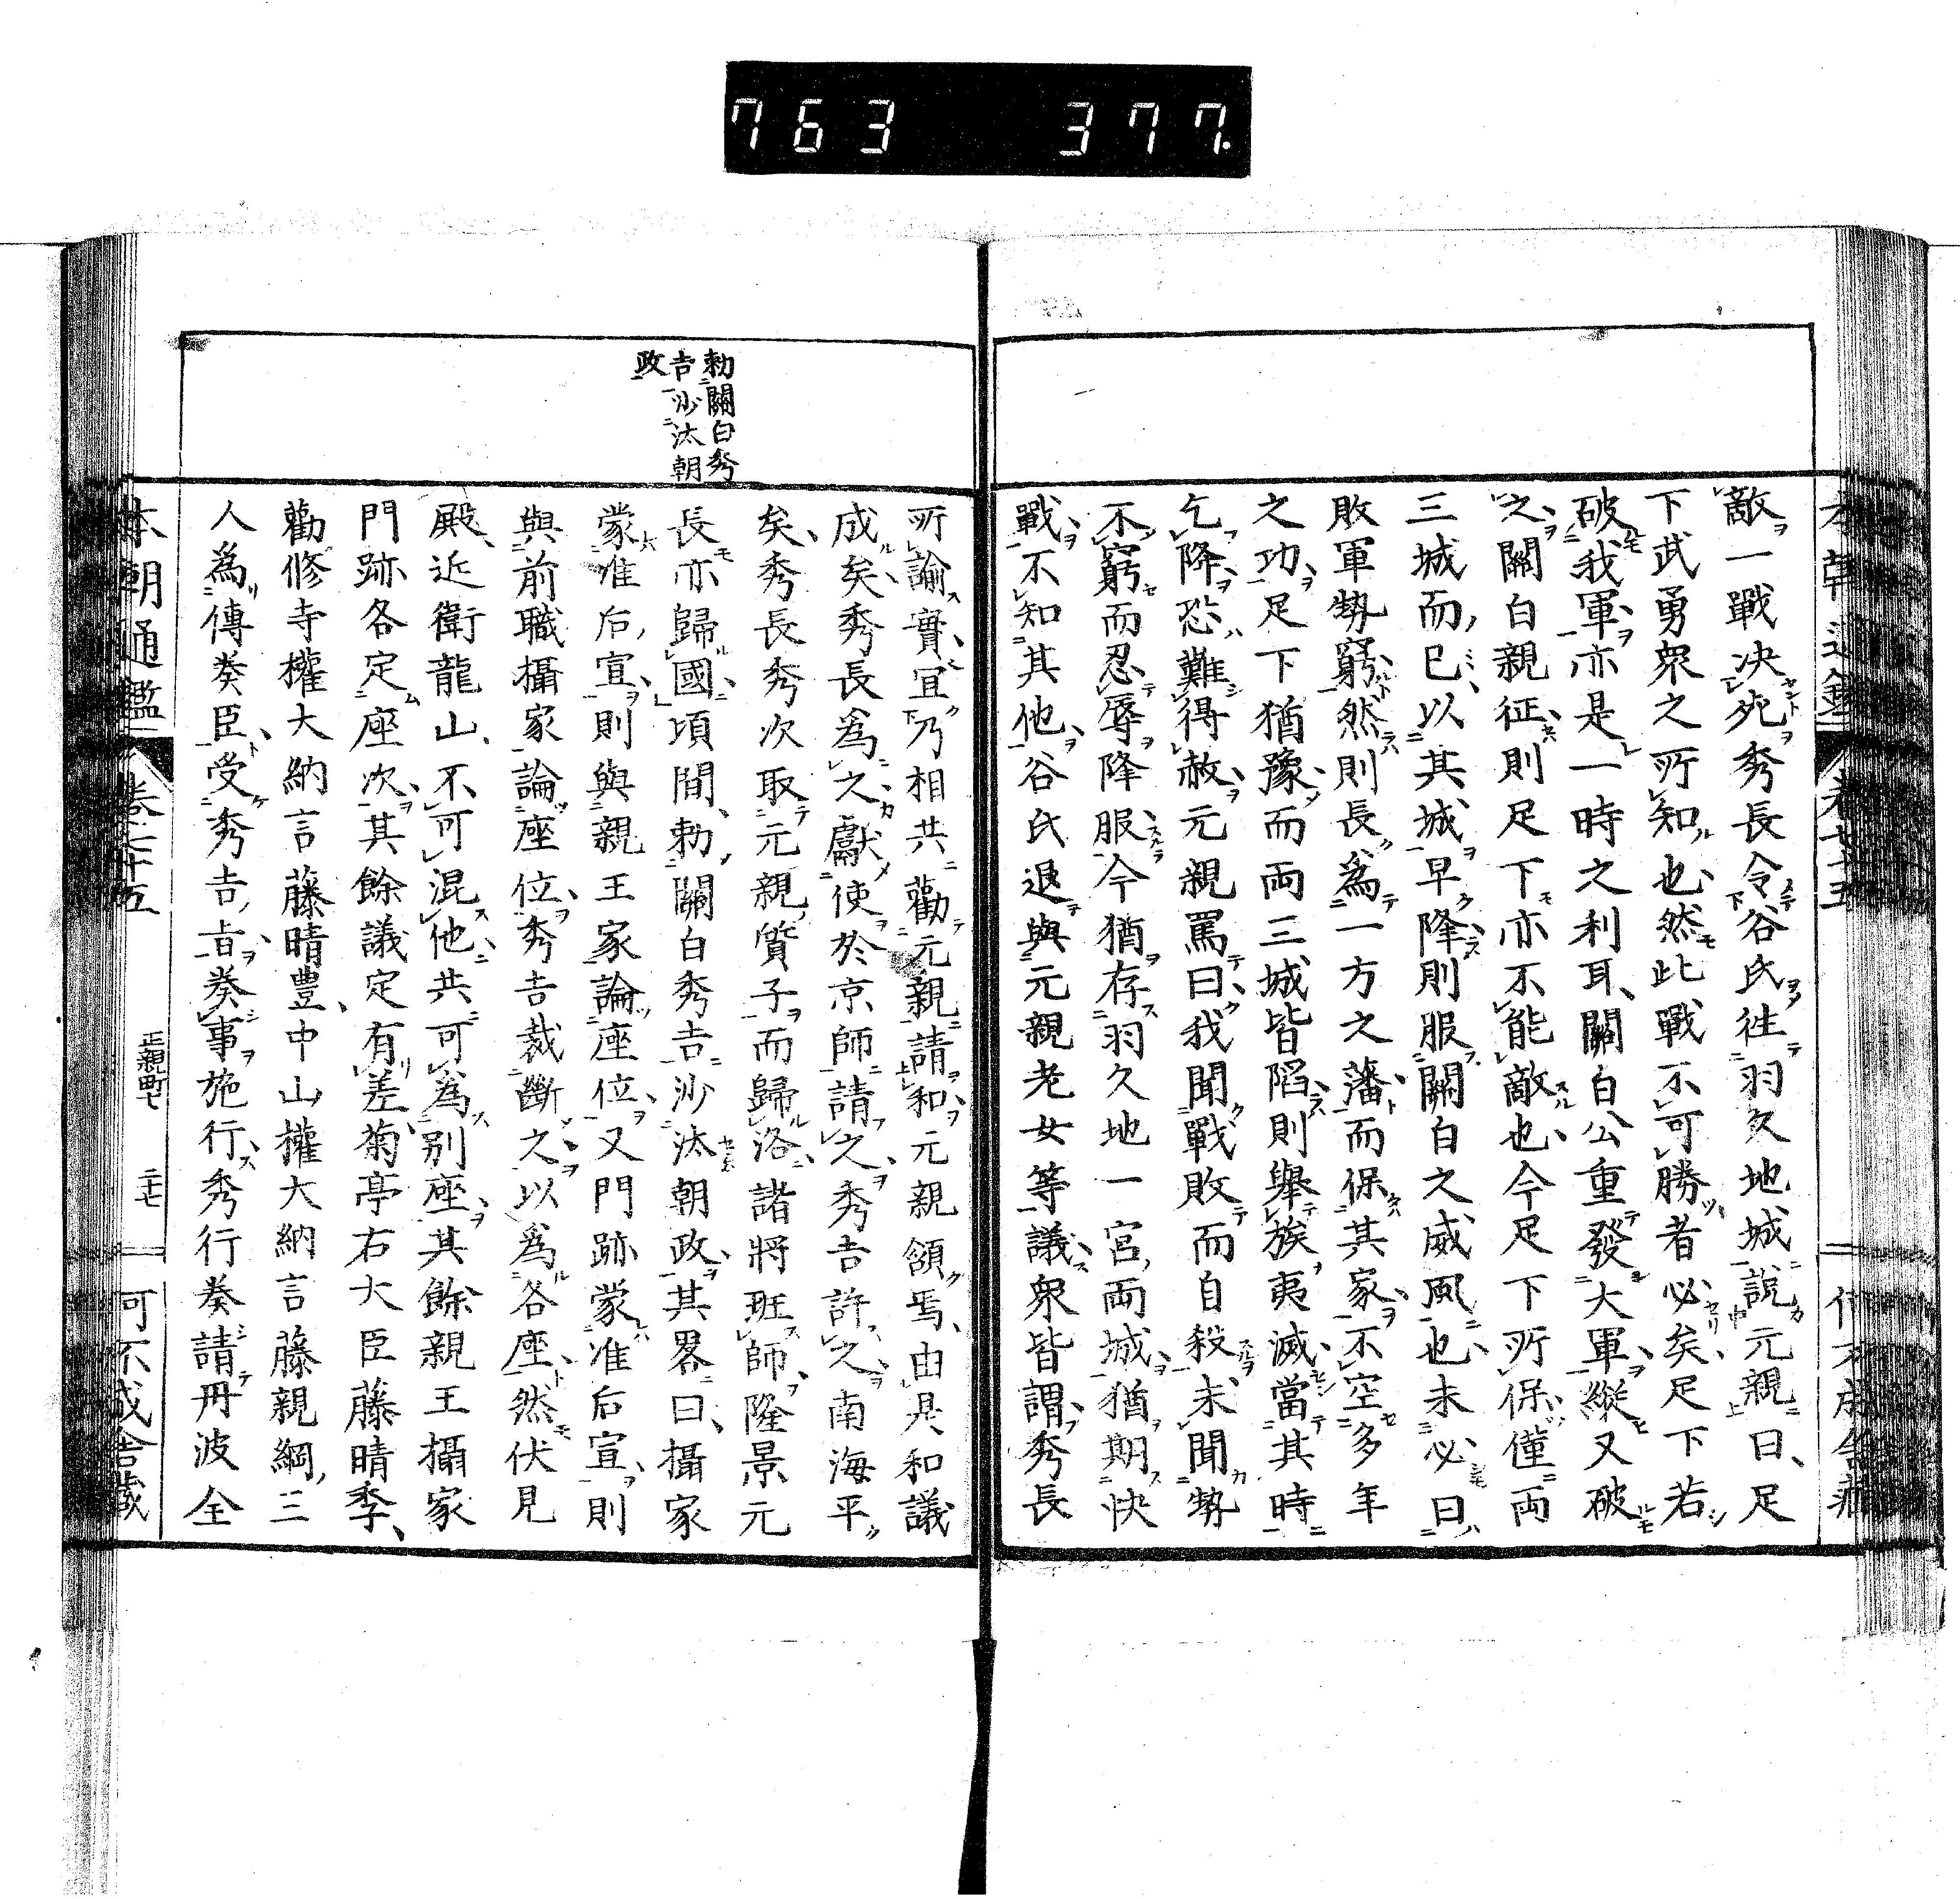 763 377.
敵一戰決死秀長令谷氏徃羽久地城說元親曰足
下武勇衆之所知也然此戰不可勝者必矣足下若
破我軍亦是一時之利耳關白公重發大軍縱又破
之關白親征則足下亦不能敵也今足下所保僅両
三城而已以其城早降則服關白之威風也未必曰
敗軍勢窮然則長爲一方之藩而保其家不空多年
之功足下猶豫而両三城皆陷則舉族夷滅當其時
乞降恐難得赦元親罵曰我聞戰敗而自殺未聞勢
不窮而忍辱降服今猶存羽久地一宮両城猶期快
戰不知其他谷氏退與元親老女等議衆皆謂秀長
所諭實宜乃相共勸元親請和元親頷焉由是和議
成矣秀長爲之獻使於京師請之秀吉許之南海平
矣秀長秀次取元親質子而歸洛諸將班師隆景元
長亦歸國頃間勅關白秀吉沙汰朝政其畧曰攝家
蒙准后宣則與親王家論座位又門跡蒙准后宣則
與前職攝家論座位秀吉裁斷之以爲各座然伏見
殿近衛龍山不可混他共可爲別座其餘親王攝家
門跡各定座次其餘議定有差菊亭右大臣藤晴季
勸修寺權大納言藤晴豊中山權大納言藤親綱三
人爲傳奏臣受秀吉旨奏事施行秀行奏請丹波全
勅關白秀
吉沙汰朝
政
本朝通鑑 卷七十五 正親町七 二十七 可不成舎蔵